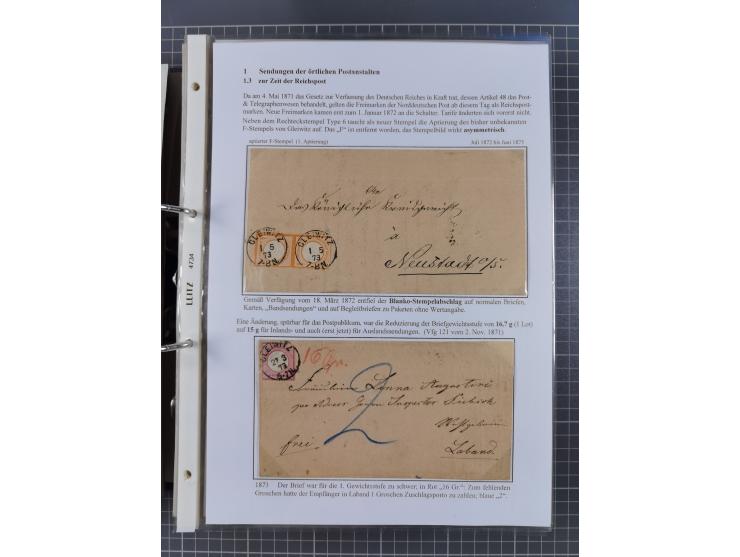 1 Sendungen der örtlichen Postanstalten
1.3 zur Zeit der Reichspost
Da am 4. Mai 1871 das Gesetz zur Verfassung des Deutschen Reiches in Kraft trat, dessen Artikel 48 das Post-
& Telegraphenwesen behandelt, gelten die Freimarken der Norddeutschen Post ab diesem Tag als Reichspost-
marken. Neue Freimarken kamen erst zum 1. Januar 1872 an die Schalter. Tarife änderten sich vorerst nicht.
Neben dem Rechteckstempel Type 6 taucht als neuer Stempel die Aptierung des bisher unbekannten
F-Stempels von Gleiwitz auf. Das „F“ ist entfernt worden, das Stempelbild wirkt asymmetrisch.
aptierter F-Stempel (1. Aptierung) Juli 1872 bis Juni 1873
An
Das Königliche Kreisgericht
à
Neustadt o/s.
GLEIWITZ
1 5
73
7-8N
GLEIWITZ
1 5
73
7-8N
Gemäß Verfügung vom 18. März 1872 entfiel der Blanko-Stempelabschlag auf normalen Briefen,
Karten, „Bandsendungen“ und auf Begleitbriefen zu Paketen ohne Wertangabe.
Eine Änderung, spürbar für das Postpublikum, war die Reduzierung der Briefgewichtsstufe von 16,7 g (1 Lot)
auf 15 g für Inlands- und auch (erst jetzt) für Auslandssendungen. (Vfg 121 vom 2. Nov. 1871)
GLEIWITZ
73
16 Gr.
2
Fräulein Anna
frei
Laband.
1873 Der Brief war für die 1. Gewichtsstufe zu schwer; in Rot „16 Gr.“: Zum fehlenden
Groschen hatte der Empfänger in Laband 1 Groschen Zuschlagsporto zu zahlen; blaue „2“.
LEITZ 4734